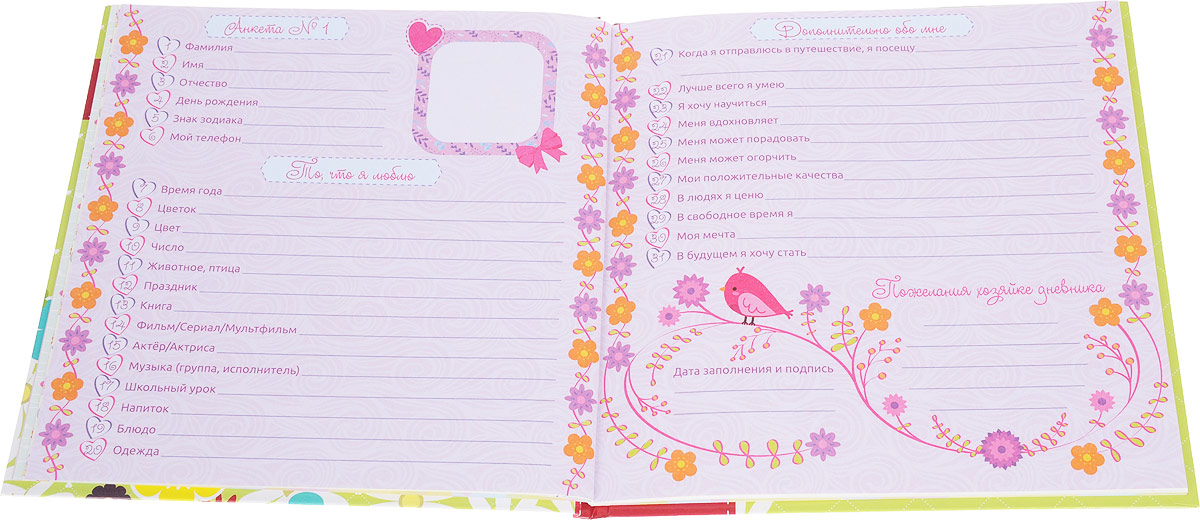 Анкета № 1
1 Фамилия
2 Имя
3 Отчество
4 День рождения
5 Знак зодиака
6 Мой телефон
То, что я люблю
7 Время года
8 Цветок
9 Цвет
10 Число
11 Животное, птица
12 Праздник
13 Книга
14 Фильм/Сериал/Мультфильм
15 Актёр/Актриса
16 Музыка (группа, исполнитель)
17 Школьный урок
18 Напиток
19 Блюдо
20 Одежда
Дополнительно обо мне
21 Когда я отправлюсь в путешествие, я посещу
22 Лучше всего я умею
23 Я хочу научиться
24 Меня вдохновляет
25 Меня может порадовать
26 Меня может огорчить
27 Мои положительные качества
28 В людях я ценю
29 В свободное время я
30 Моя мечта
31 В будущем я хочу стать
Пожелания хозяйке дневника
Дата заполнения и подпись